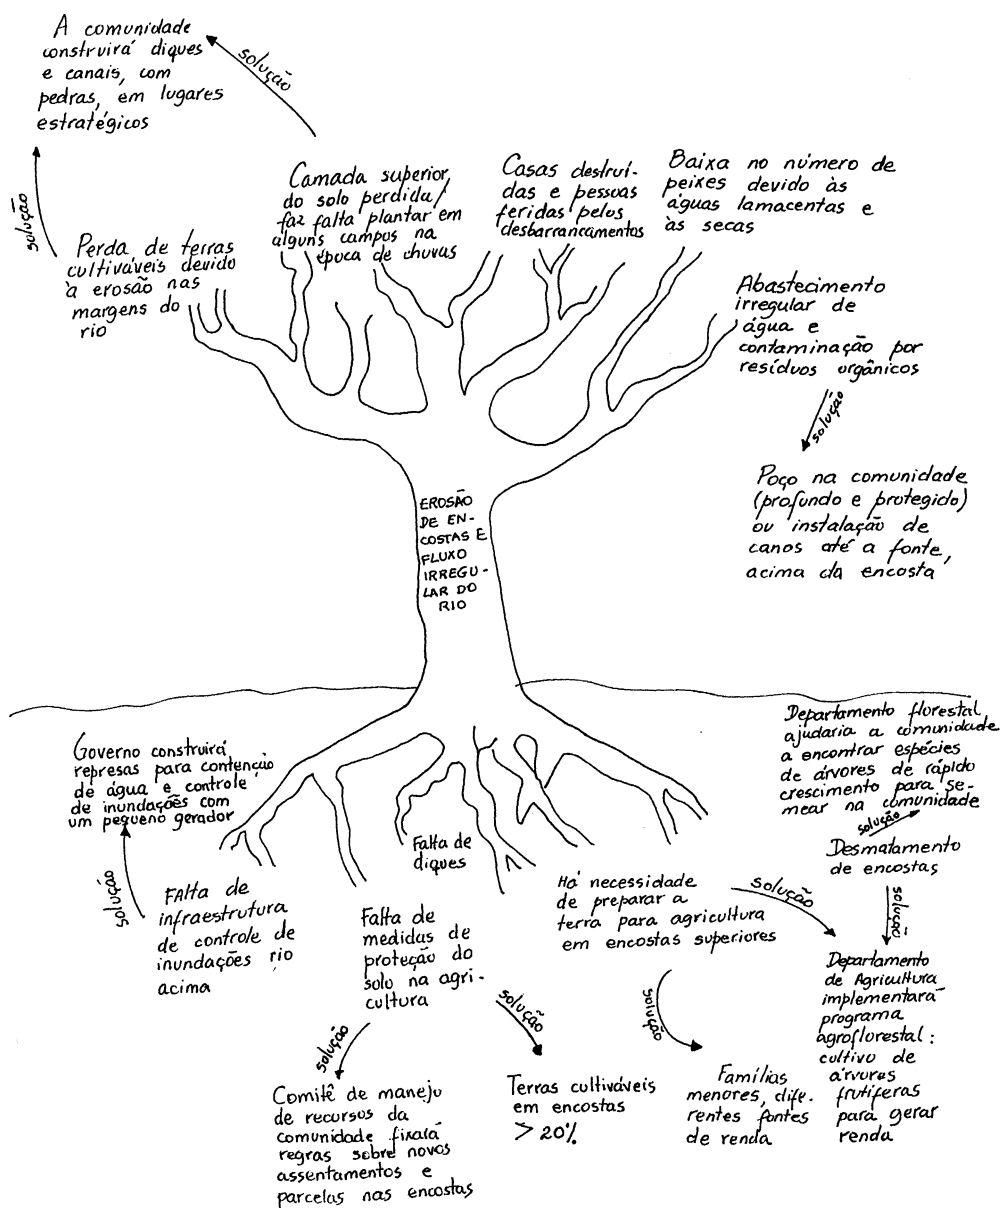 A comunidade
construirá diques
e canais, com
pedras, em lugares
estratégicos
solução
solução
Perda de terras
cultiváveis devido
à erosão nas
margens do
rio
Camada superior
do solo perdida/
faz falta plantar em
alguns campos na
época de chuvas
Casas destruí-
das e pessoas
feridas pelos
desbarrancamentos
Baixa no número de
peixes devido às
águas lamacentas e
às secas
Abastecimento
irregular de
água e
contaminação por
resíduos orgânicos
solução
Poço na comunidade
(profundo e protegido)
ou instalação de
canos até a fonte,
acima da encosta
EROSÃO
DE EN-
COSTAS E
FLUXO
IRREGU-
LAR DO
RIO
Governo construirá
represas para contenção
de água e controle
de inundações com
um pequeno gerador
solução
Falta de
infraestrutura
de controle de
inundações rio
acima
Falta de
medidas de
proteção do
solo na agri-
cultura
solução
solução
Comitê de manejo
de recursos da
comunidade fixará
regras sobre novos
assentamentos e
parcelas nas encostas
Terras cultiváveis
em encostas
> 20%
Falta de
diques
Há necessidade
de preparar a
terra para agricultura
em encostas superiores
solução
solução
Famílias
menores, dife-
rentes fontes
de renda
Departamento florestal
ajudaria a comunidade
a encontrar espécies
de árvores de rápido
crescimento para se-
mear na comunidade
solução
Desmatamento
de encostas
solução
Departamento
de Agricultura
implementará
programa
agroflorestal:
cultivo de
árvores
frutíferas
para gerar
renda